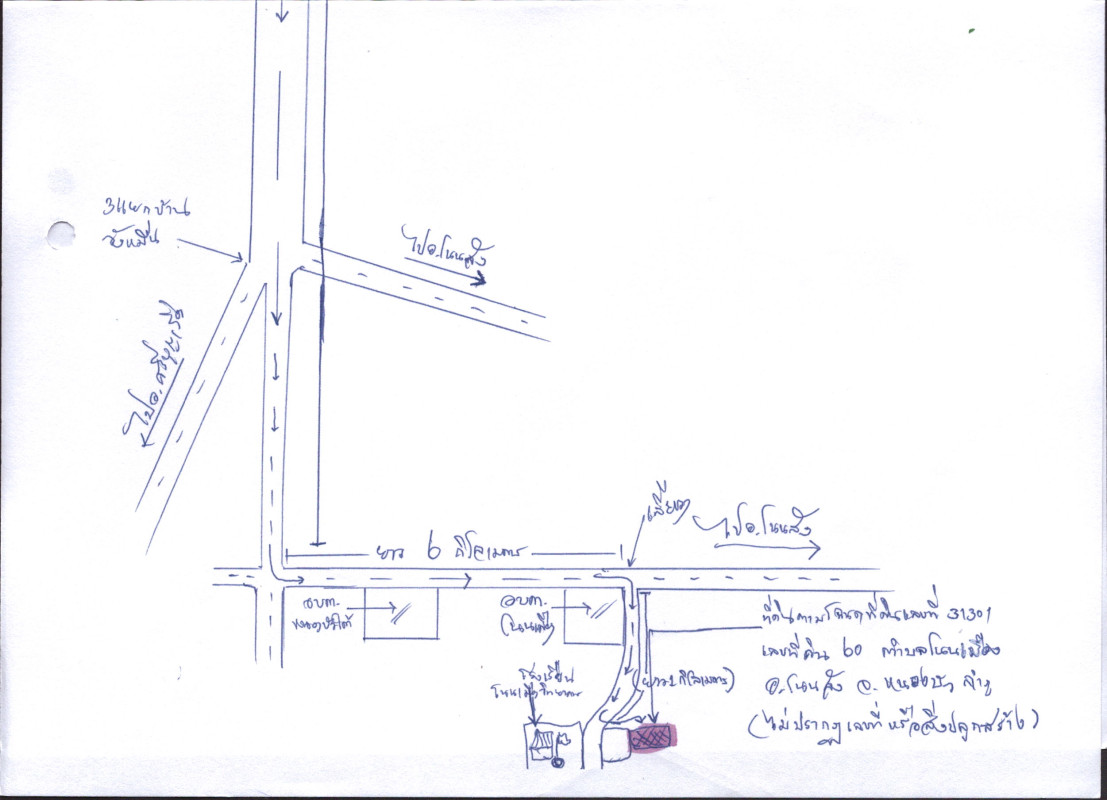 3แยกบ้าน
วังหมื่น
ไปอ.โนนสัง
ไปอ.ศรีบุญเรือง
เลี้ยว
ไปอ.โนนสัง
ยาว 6 กิโลเมตร
อบต.
อบต.
โนนเมือง
ที่ดินตามโฉนดที่ดินเลขที่ 31301
เลขที่ดิน 60 ตำบลโนนเมือง
อ.โนนสัง จ.หนองบัวลำภู
(ไม่ปรากฏเลขที่หรือสิ่งปลูกสร้าง)
โรงเรียน
โนนเมืองวิทยาคาร
ยาว 2 กิโลเมตร)